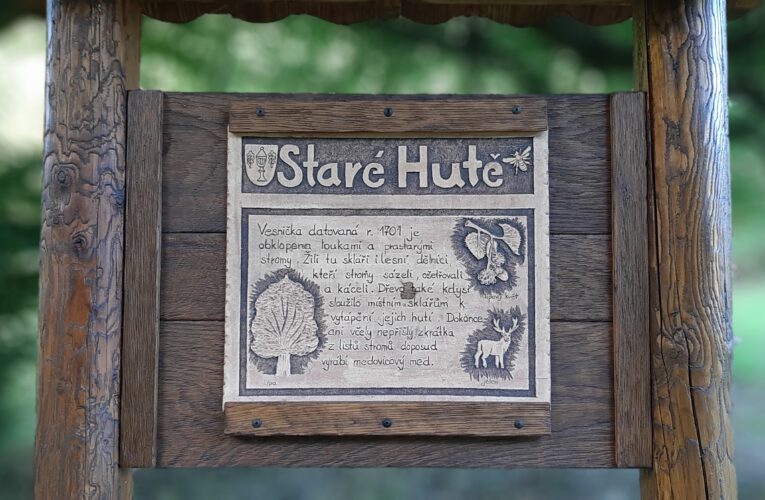 Staré Hutě
Vesnička datovaná r. 1701 je
obklopena loukami a prastarými
stromy. Žili tu skláři i lesní dělníci,
kteří stromy sázeli, ošetřovali
a káceli. Dřevo také kdysi
sloužilo místním sklářům k
vytápění jejich hutí. Dokonce
ani včely nepřišly zkrátka
z listů stromů doposud
vyrábí medovicový med.
lipový květ
lípa
jelen